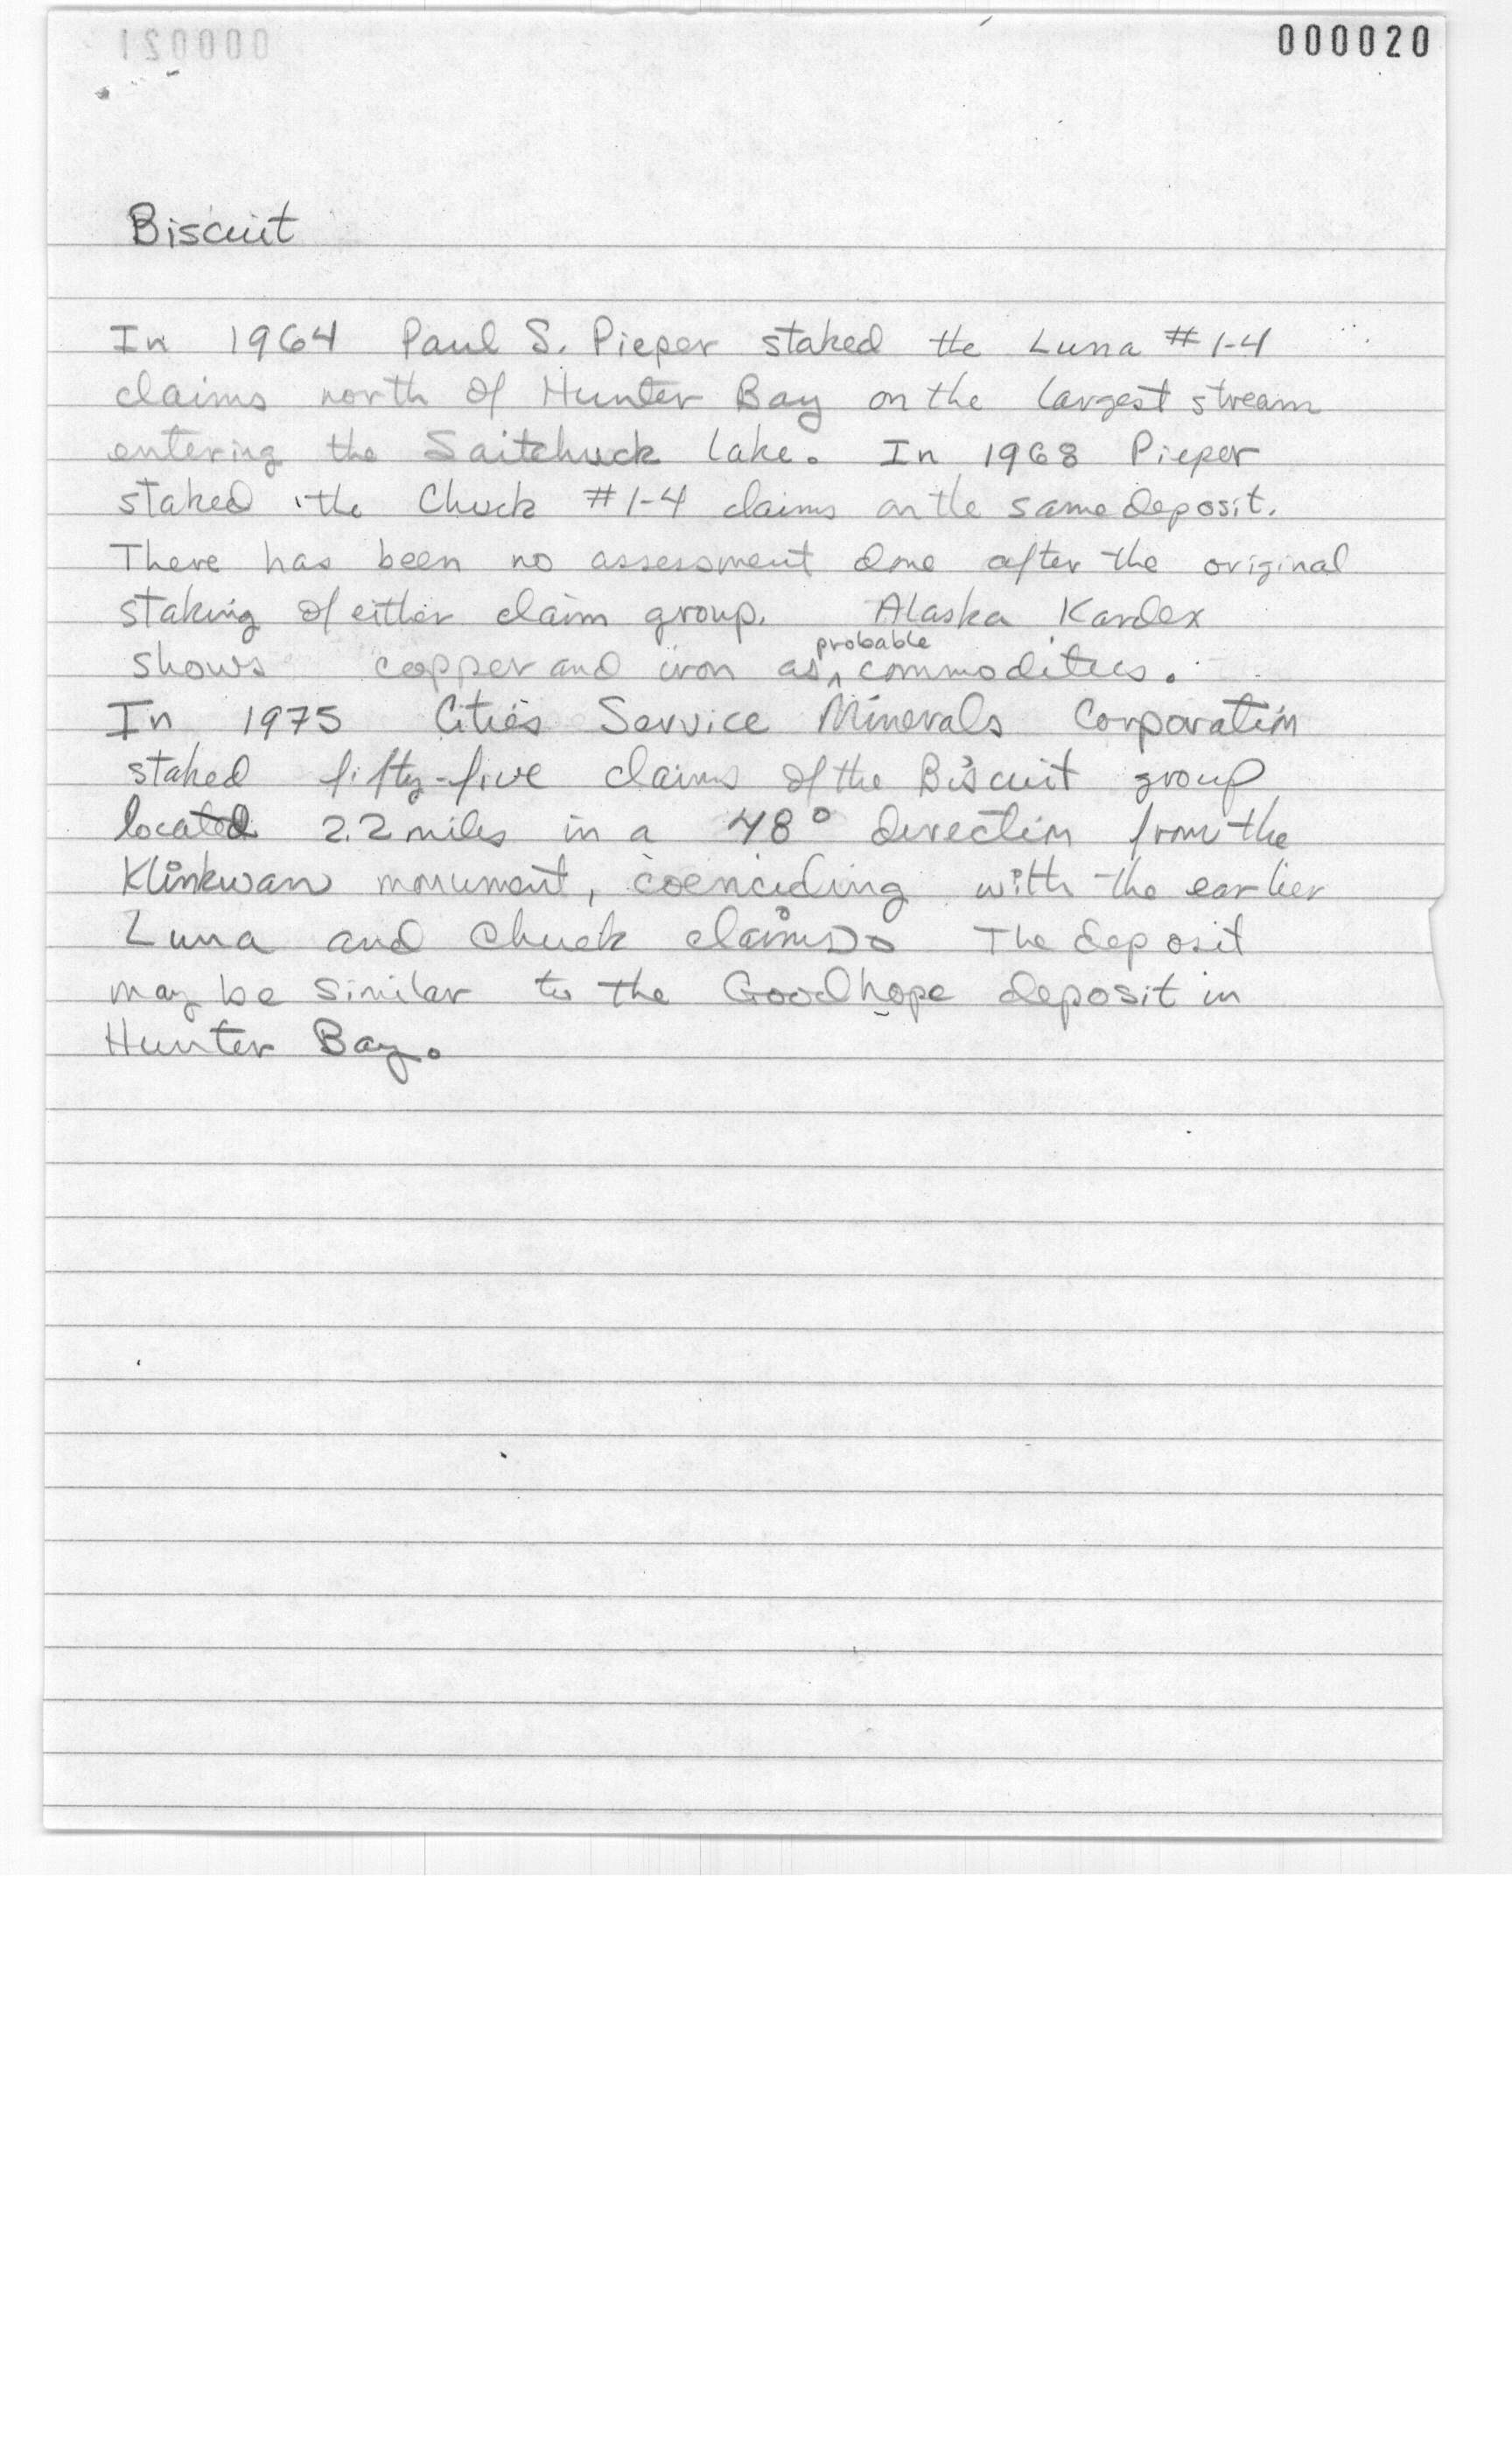 000020
Biscuit
In 1964 Paul S. Pieper staked the Luna #1-4
claims north of Hunter Bay on the largest stream
entering the Saitchuck lake. In 1968 Pieper
staked the Chuck #1-4 claims on the same deposit.
There has been no assessment done after the original
staking of either claim group. Alaska Kardex
shows copper and iron as probable commodities.
In 1975 Cities Service Minerals Corporation
staked fifty-five claims of the Biscuit group
located 2.2 miles in a 48° direction from the
Klinkwan monument, coenciding with the earlier
Luna and Chuck claims. The deposit
may be similar to the Goodhope deposit in
Hunter Bay.